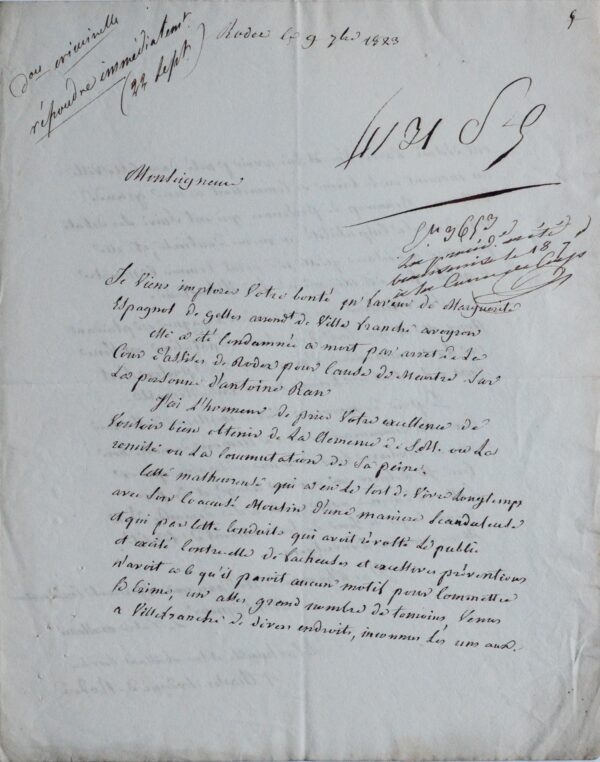 5
don criminelle
répondre immédiatemt
(22 Sept.)
Rodez le 9 7bre 1823
4131 S5
Monseigneur
Sn 3653
La procéd. a été
transmise le 18 7
à la Cour de Cass
Je Viens implorer Votre bonté en faveur de Marguerite
Espagnol de gelles arrondt de Villefranche aveyron
elle a été Condamnée a mort par arret de La
Cour d'assises de Rodez pour Cause de Meurtre Sur
La personne d'antoine Ran
J'ai L'honneur de prier Votre excellence de
Vouloir bien obtenir de La Clemence de S.M. ou La
remise ou La Commutation de Sa peine.
Cette malheureuse qui a eu Le tort de Vivre Longtemps
avec Son Coaccusé Moulin d'une maniere Scandaleuse
et qui par Cette Conduite qui avoit révolté Le public
et excité Contre elle de facheuses et excessives préventions
n'avoit a Ce qu'il paroit aucun motif pour Commettre
Le Crime, un asses grand nombre de temoins Venus
a Villefranche de divers endroits, inconnus Les uns aux